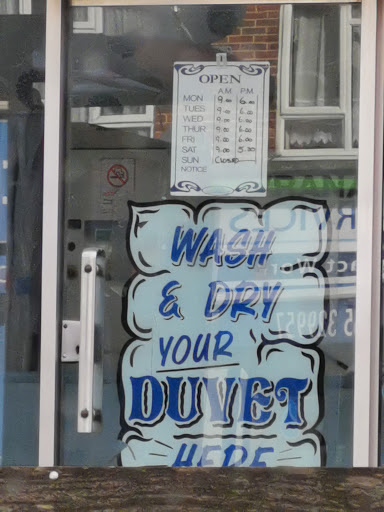 OPEN
AM PM
MON 9.00 6.00
TUES 9.00 6.00
WED 9.00 6.00
THUR 9.00 6.00
FRI 9.00 6.00
SAT 9.00 5.30
SUN CLOSED
NOTICE
WASH
& DRY
YOUR
DUVET
HERE